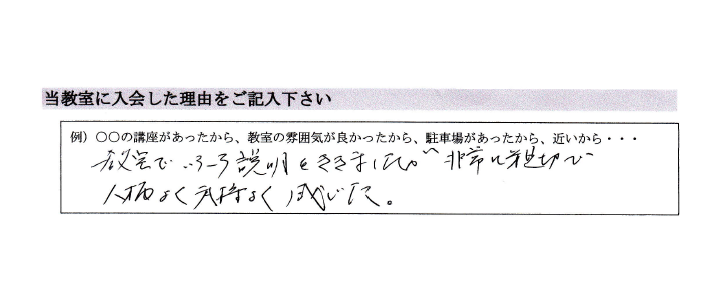 当教室に入会した理由をご記入下さい
例）〇〇の講座があったから、教室の雰囲気が良かったから、駐車場があったから、近いから・・・
教室でいろいろ説明をききました。非常に親切で
人柄よく気持よく感じた。